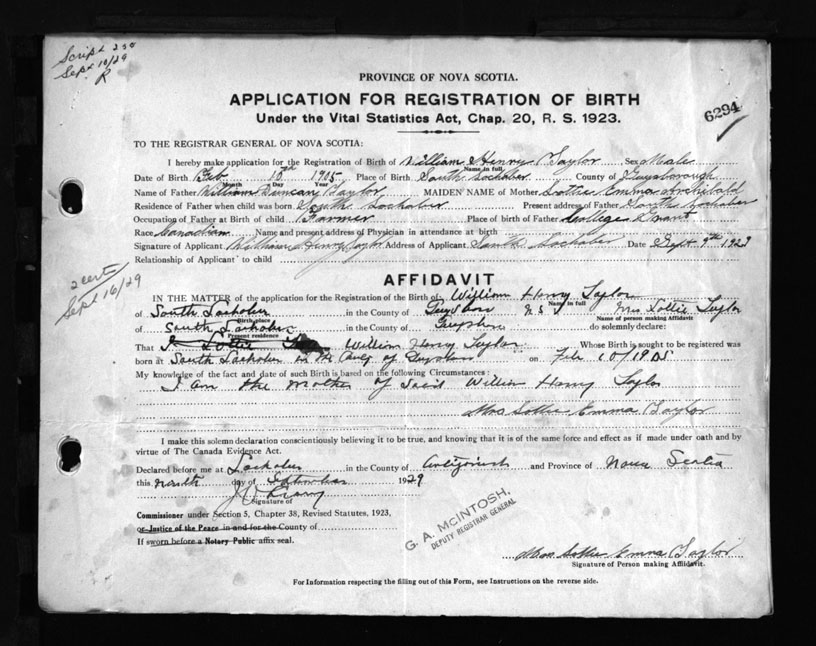 Sept 10/29
R
PROVINCE OF NOVA SCOTIA.
APPLICATION FOR REGISTRATION OF BIRTH
Under the Vital Statistics Act, Chap. 20, R. S. 1923.
6294
TO THE REGISTRAR GENERAL OF NOVA SCOTIA:
I hereby make application for the Registration of Birth of William Henry Taylor Sex Male
Name in full
Date of Birth Feb 10th 1905 Place of Birth South Lochaber County of Guysborough
Month Day Year
Name of Father William Duncan Taylor MAIDEN NAME of Mother Lottie Emma Archibald
Residence of Father when child was born South Lochaber Present address of Father South Lochaber
Occupation of Father at Birth of child Farmer Place of birth of Father College Grant
Race Canadian Name and present address of Physician in attendance at birth
Signature of Applicant William Henry Taylor Address of Applicant South Lochaber Date Sept 9th 1929
Relationship of Applicant to child
2 cert
Sept 16/29
AFFIDAVIT
IN THE MATTER of the application for the Registration of the Birth of William Henry Taylor
Name in full
of South Lochaber in the County of Guysboro N S Mrs Lottie Taylor
Birth place Name of person making Affidavit
of South Lochaber in the County of Guysboro do solemnly declare:
Present residence
That William Henry Taylor Whose Birth is sought to be registered was
born at South Lochaber in the County of Guysboro on Feb 10/1905
My knowledge of the fact and date of such Birth is based on the following Circumstances:
I am the mother of said William Henry Taylor
Mrs Lottie Emma Taylor
I make this solemn declaration conscientiously believing it to be true, and knowing that it is of the same force and effect as if made under oath and by
virtue of The Canada Evidence Act.
Declared before me at Lochaber in the County of Antigonish and Province of Nova Scotia
this ninth day of September 1929
Signature of
Commissioner under Section 5, Chapter 38, Revised Statutes, 1923,
or Justice of the Peace in and for the County of
If sworn before a Notary Public affix seal.
G. A. McINTOSH,
DEPUTY REGISTRAR GENERAL
Mrs Lottie Emma Taylor
Signature of Person making Affidavit.
For Information respecting the filling out of this Form, see Instructions on the reverse side.